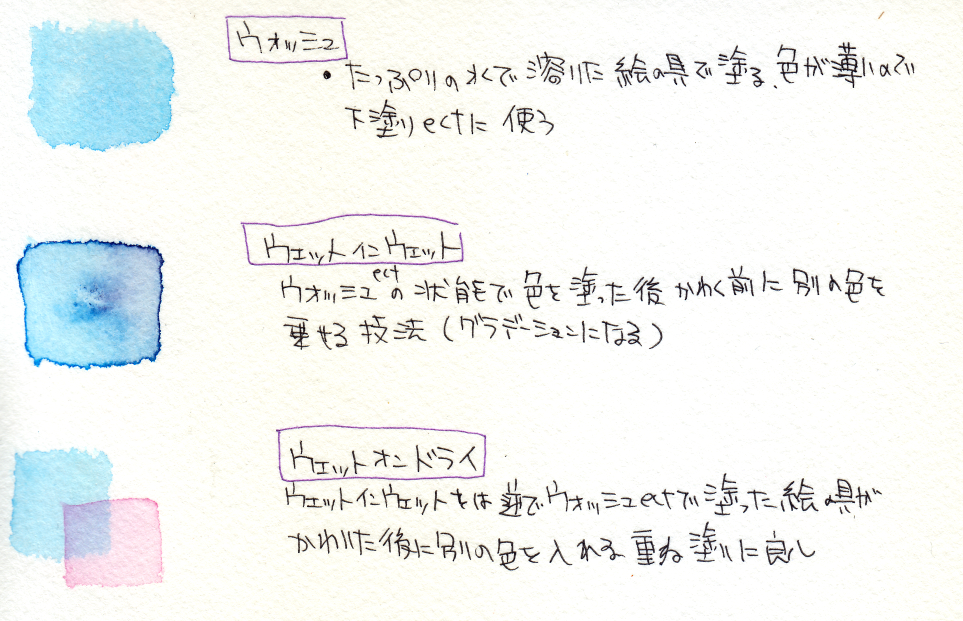 ウォッシュ
・たっぷりの水で溶いた絵の具で塗る、色が薄いので
下塗りectに使う
ウェットインウェット
ect
ウォッシュの状態で色を塗った後かわく前に別の色を
乗せる技法(グラデーションになる)
ウェットオンドライ
ウェットインウェットとは逆でウォッシュectで塗った絵の具が
かわいた後に別の色を入れる重ね塗りに良し